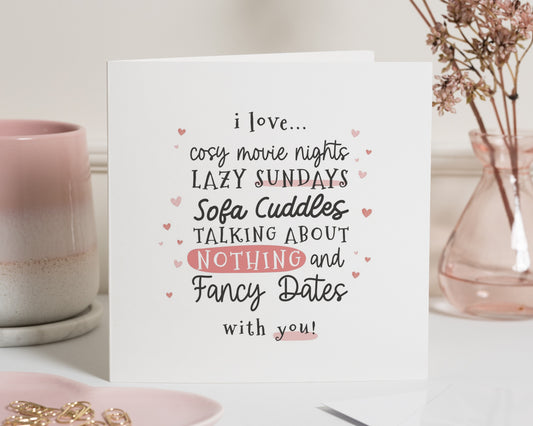 i love...
cosy movie nights
LAZY SUNDAYS
Sofa Cuddles
TALKING ABOUT
NOTHING and
Fancy Dates
with you!